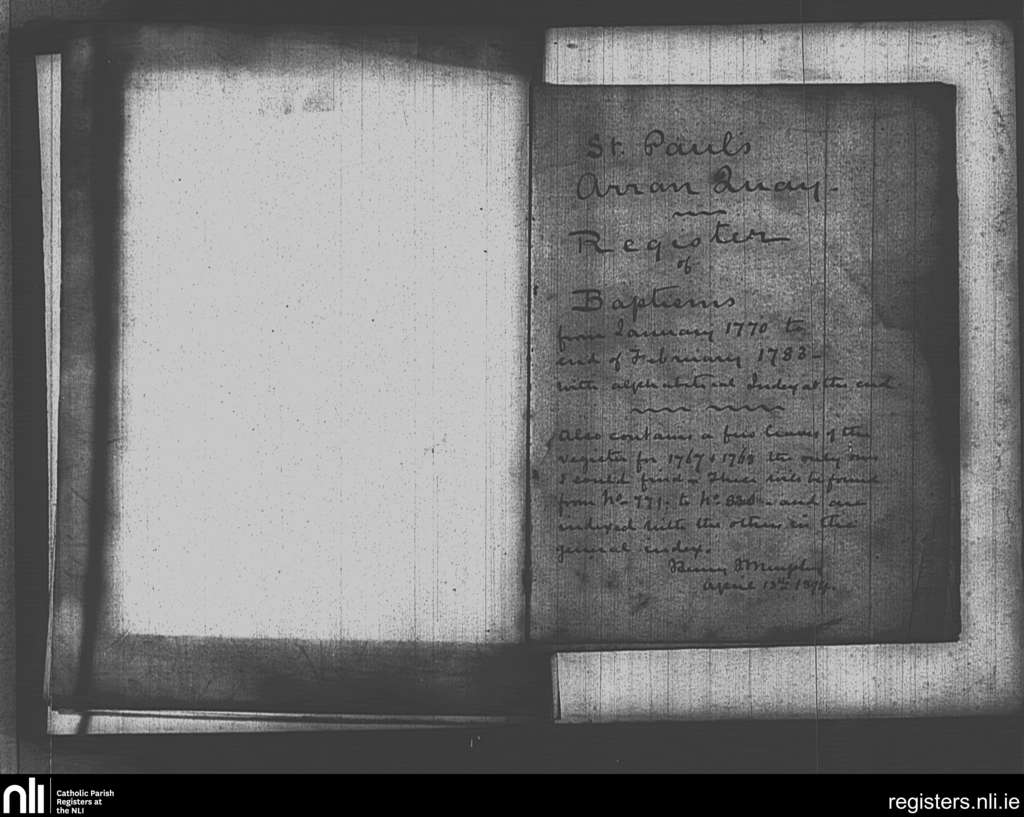 St. Paul's
Arran Quay.
Register
of
Baptisms
from January 1770 to
end of February 1783 -
with alphabetical Index at the end
Also contains a few leaves of the
register for 1767 & 1768 the only ones
I could find. These will be found
from No. 771. to No. and are
indexed with the others in the
general index.
Murphy
April 13th
nli
Catholic Parish
Registers at
the NLI
registers.nli.ie